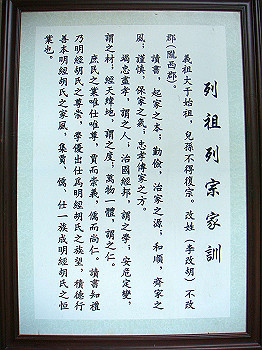 列祖列宗家訓
義祖大于始祖，兒孫不得復宗。改姓（李改胡）不改
郡（隴西郡）。
讀書，起家之本；勤儉，治家之源；和順，齊家之
風；謹慎，保家之氣；忠孝，傳家之方。
竭忠盡孝，謂之人；治國經邦，謂之學；安危定變，
謂之材；經天緯地，謂之度；萬物一體，謂之仁。
庶民之業唯仕唯尊，賈而崇義，儒而尚仁。讀書知禮
乃明經胡氏之尊崇，學優出仕爲明經胡氏之族望，積德行
善本明經胡氏之家風，集賈、儒、仕一族成明經胡氏之恒
業也。